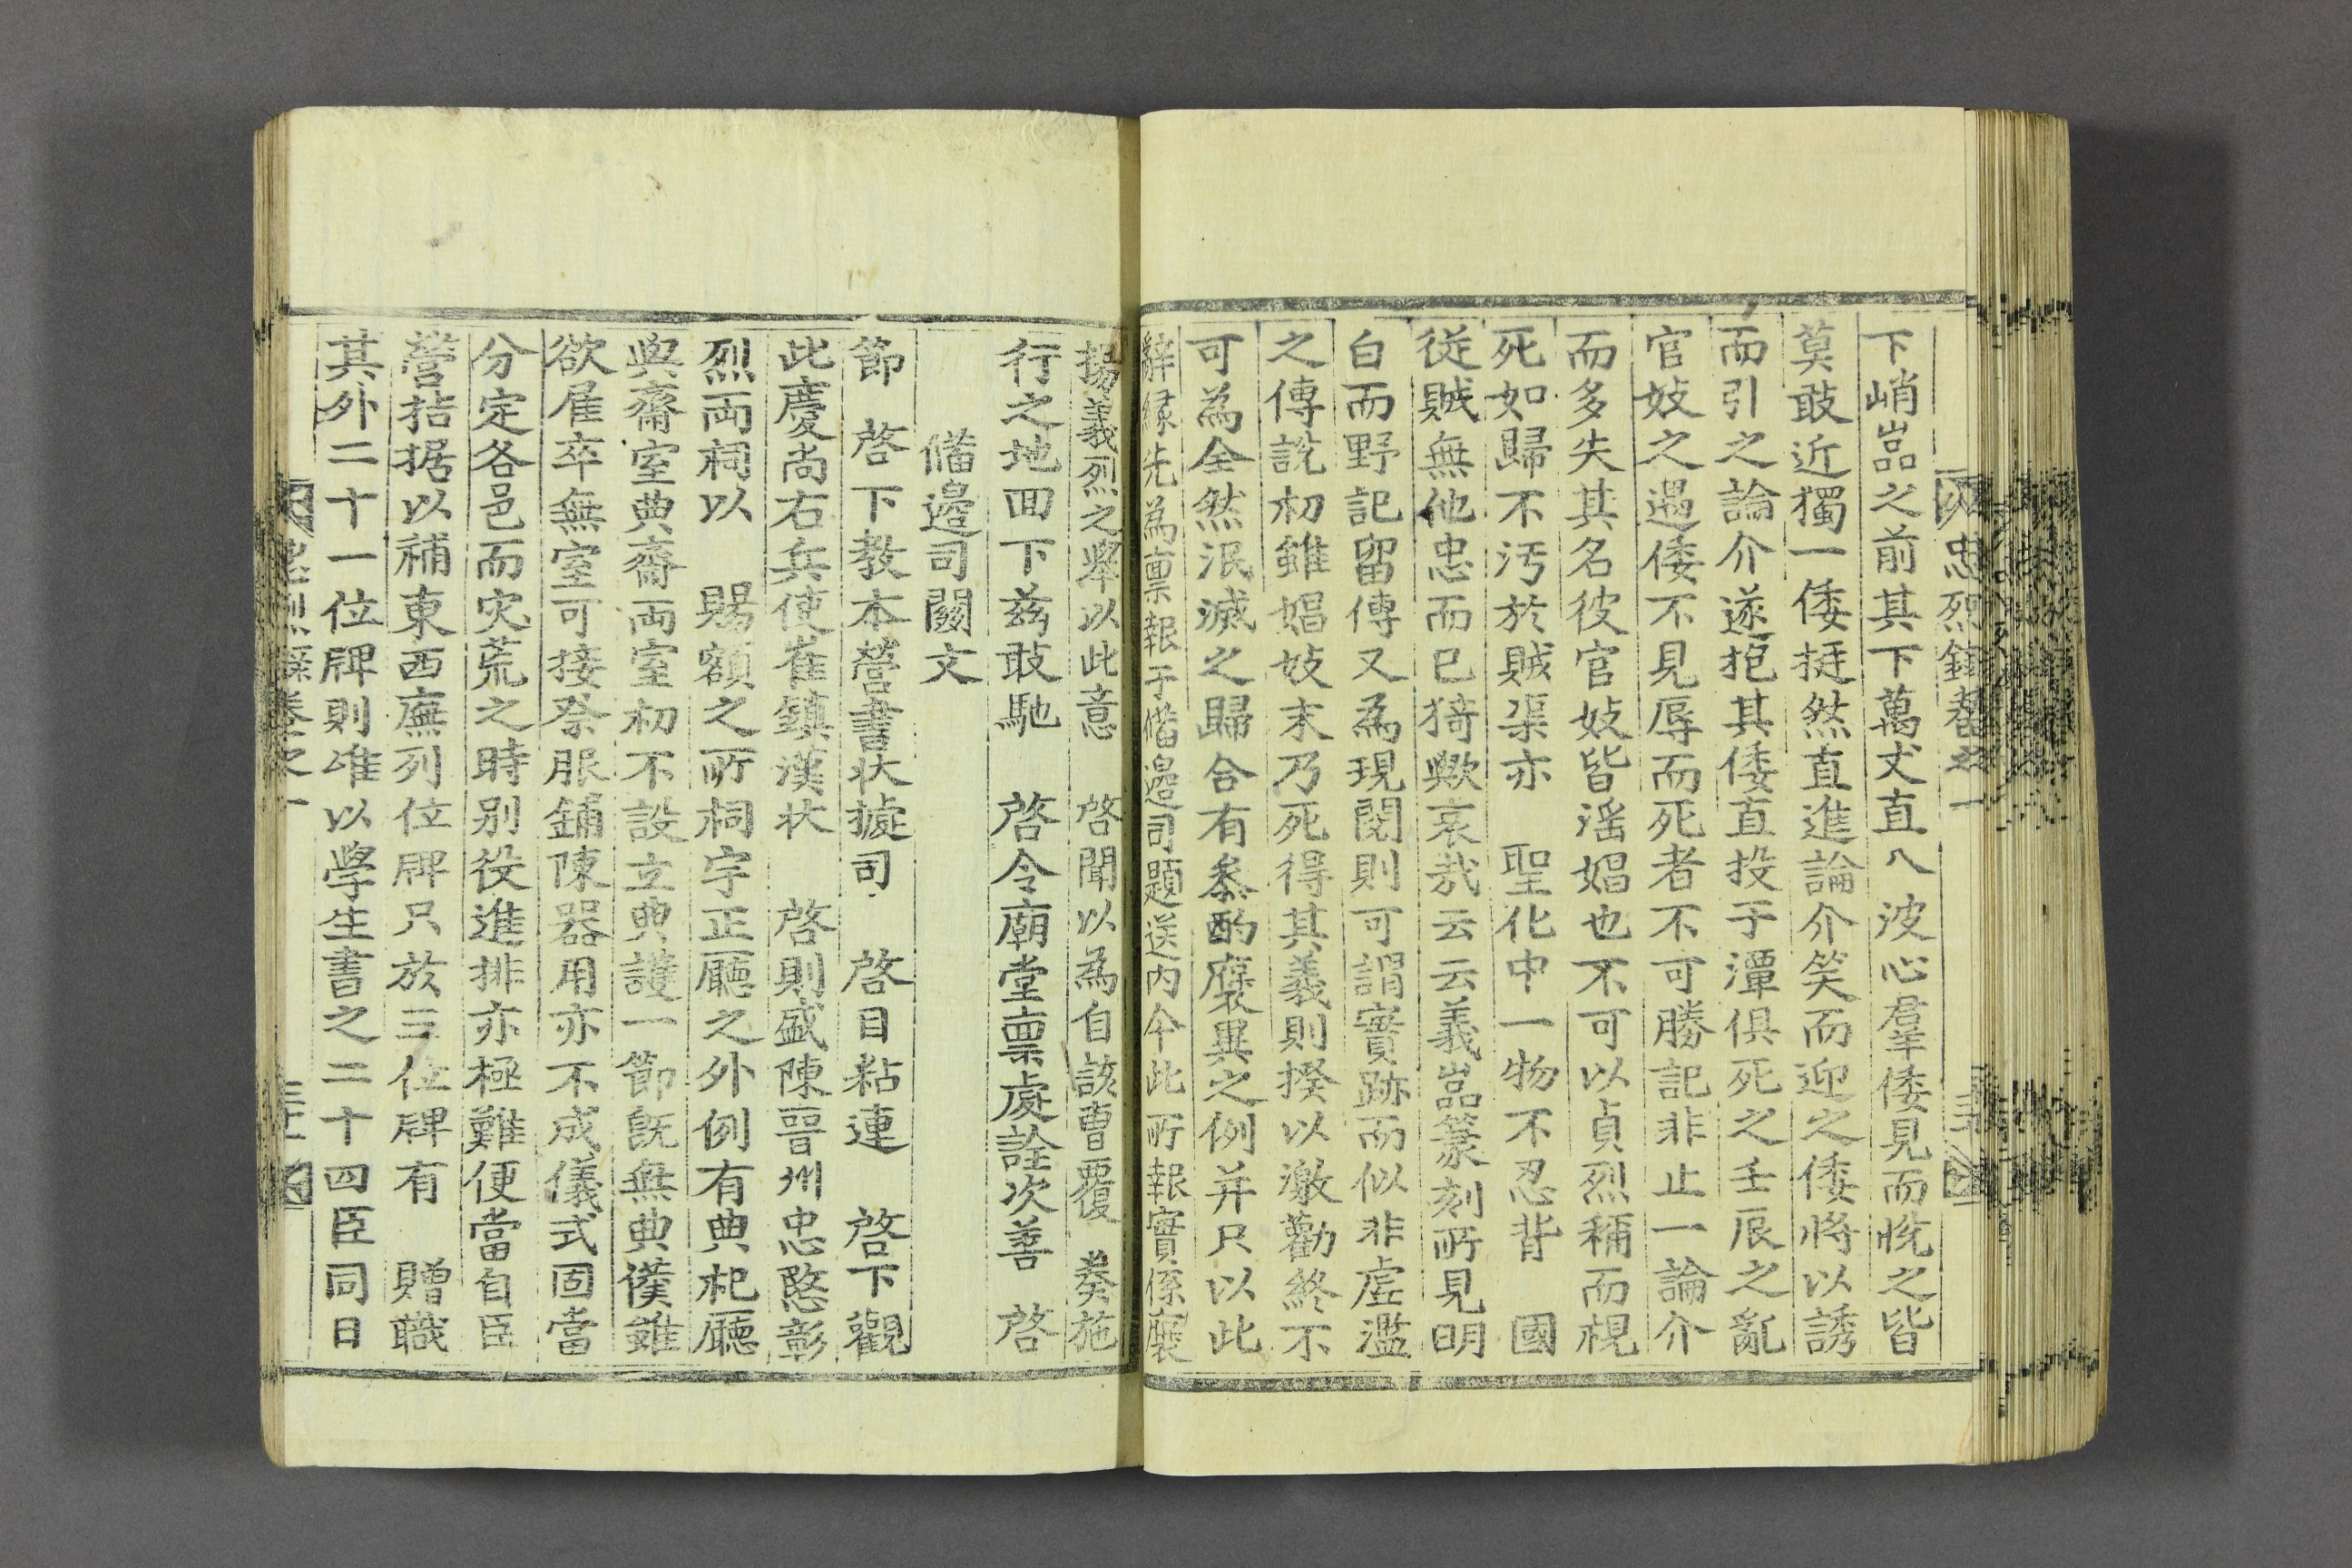 忠烈錄卷之一
下峭嵓之前其下萬丈直入波心羣倭見而悅之皆
莫敢近獨一倭挺然直進論介笑而迎之倭將以誘
而引之論介遂抱其倭直投于潭俱死之壬辰之亂
官妓之遇倭不見辱而死者不可勝記非止一論介
而多失其名彼官妓皆滛娼也不可以貞烈稱而視
死如歸不汚於賊渠亦 聖化中一物不忍背 國
從賊無他忠而已猗歟哀哉云云義嵓篆刻所見明
白而野記留傳又爲現閱則可謂實跡而似非虛濫
之傳說初雖娼妓末乃死得其義則揆以激勸終不
可爲全然泯滅之歸合有叅酌襃異之例并只以此
辭緣先爲稟報于備邊司題送內今此所報實係襃
揚義烈之擧以此意 啓聞以爲自該曹覆 奏施
行之地回下玆敢馳 啓令廟堂稟處詮次善 啓
備邊司關文
節 啓下敎本營書狀據司 啓目粘連 啓下觀
此慶尙右兵使崔鎭漢狀 啓則盛陳晉州忠愍彰
烈兩祠以 賜額之所祠宇正廳之外例有典祀廳
與齋室典齋兩室初不設立典護一節旣無典僕雖
欲雇卒無室可接祭服鋪陳器用亦不成儀式固當
分定各邑而灾荒之時別役進排亦極難便當自臣
營拮据以補東西廡列位牌只於三位牌有 贈職
其外二十一位牌則唯以學生書之二十四臣同日
忠烈錄卷之一